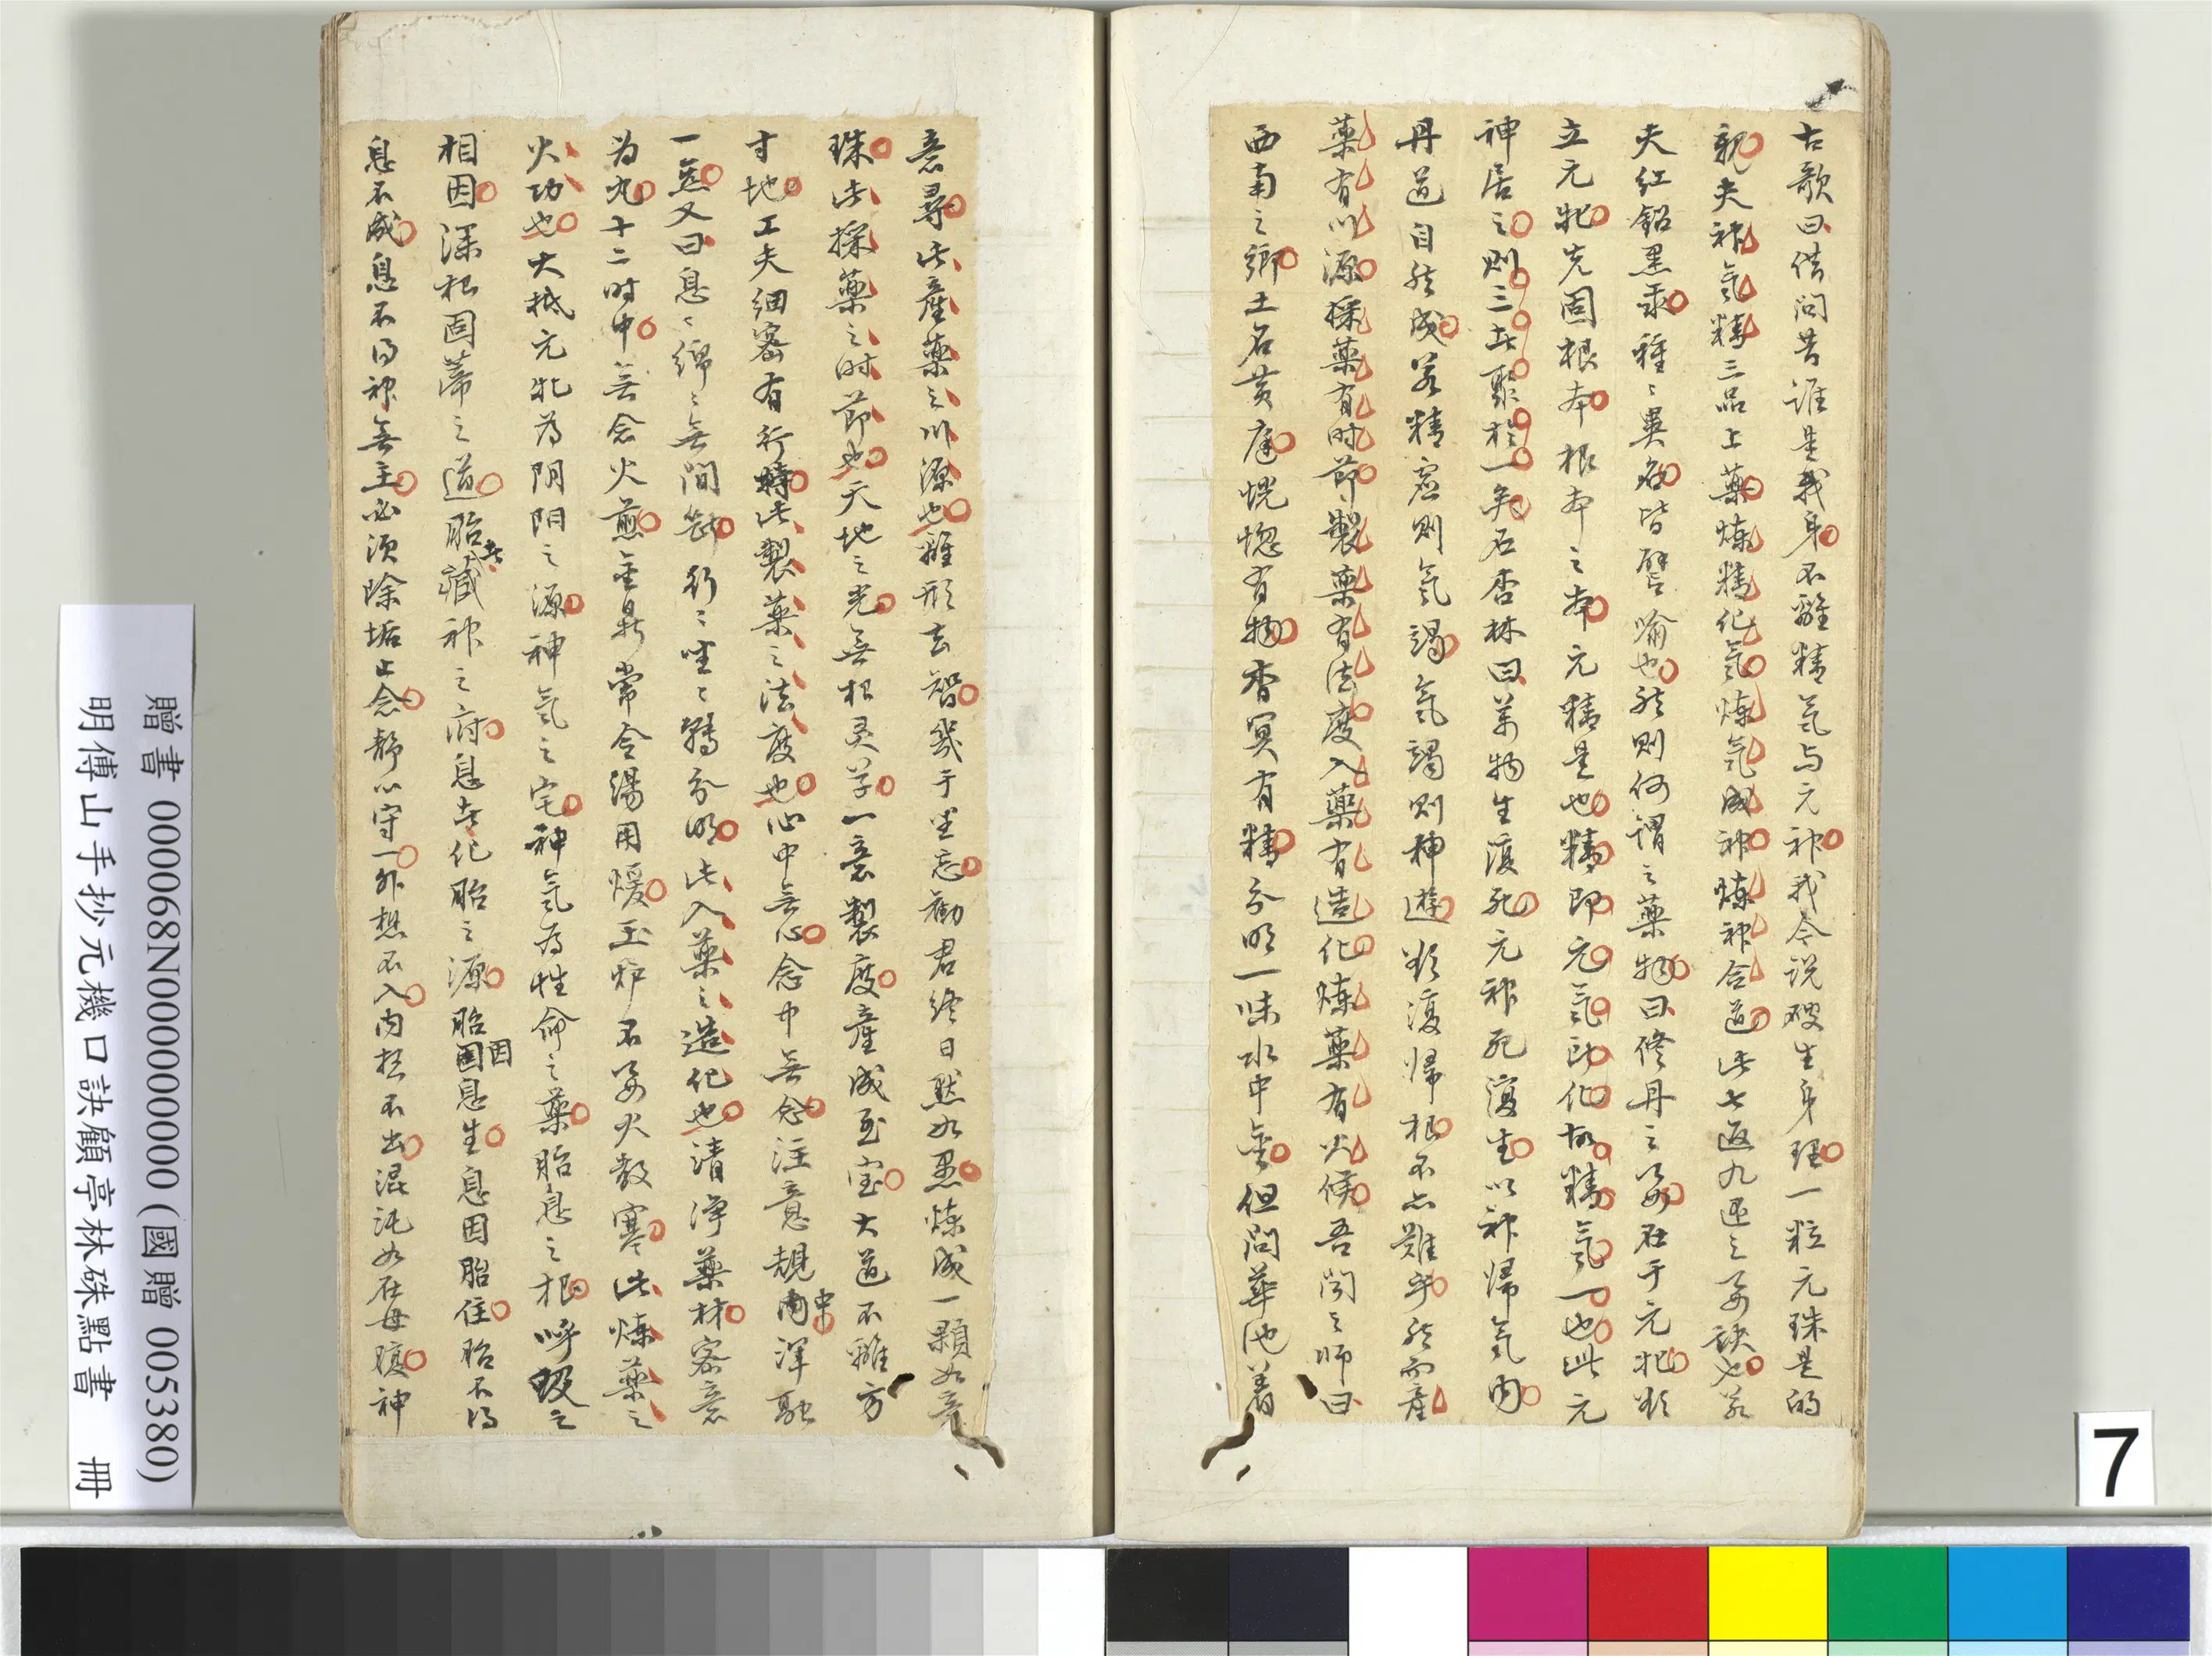 古歌曰借問昔誰是我身不離精氣与元神我今说破生身理一粒元珠是的
親夫神氣精三品上藥煉精化氣煉氣成神煉神合道此七返九還之要訣也若
夫红鉛黑汞種〻異名皆譬喻也然則何謂之藥物曰修丹之要在于元牝欲
立元牝先固根本根本之本元精是也精即元氣所化故精氣一也此元
神居之則三者聚於一矣石杏林曰萬物生復死元神死復生以神歸氣內
丹道自然成若精虛則氣竭氣竭則神遊欲復歸根不亦難乎然而產
藥有川源採藥有时節製藥有法度入藥有造化煉藥有火候吾闻之师曰
西南之鄉土名黄庭恍惚有物杳冥有精分明一味水中金但問華池着
意尋此產藥之川源也離形去智幾于坐忘勸君終日默如愚煉成一顆如意
珠此採藥之时節也天地之先無根灵草一意製度產成至宝大道不離方
寸地工夫細密有行持此製藥之法度也心中無心念中無念注意規中渾融
一氣又曰息〻綿〻無間斷行〻坐〻轉分明此入藥之造化也清淨藥材密意
为丸十二时中無念火煎金鼎常令湯用煖玉炉不要火教寒此煉藥之
火功也大抵元牝为阴阳之源神氣之宅神氣为性命之藥胎息之根呼吸之
相因深根固蒂之道胎者藏神之府息者化胎之源胎因息生息因胎住胎不得
息不成息不得神無主必須除垢止念静心守一外想不入內想不出混沌如在母腹神
7
贈書 000068N000000000 (國贈 005380)
明傅山手抄元機口訣顧亭林硃點書 冊